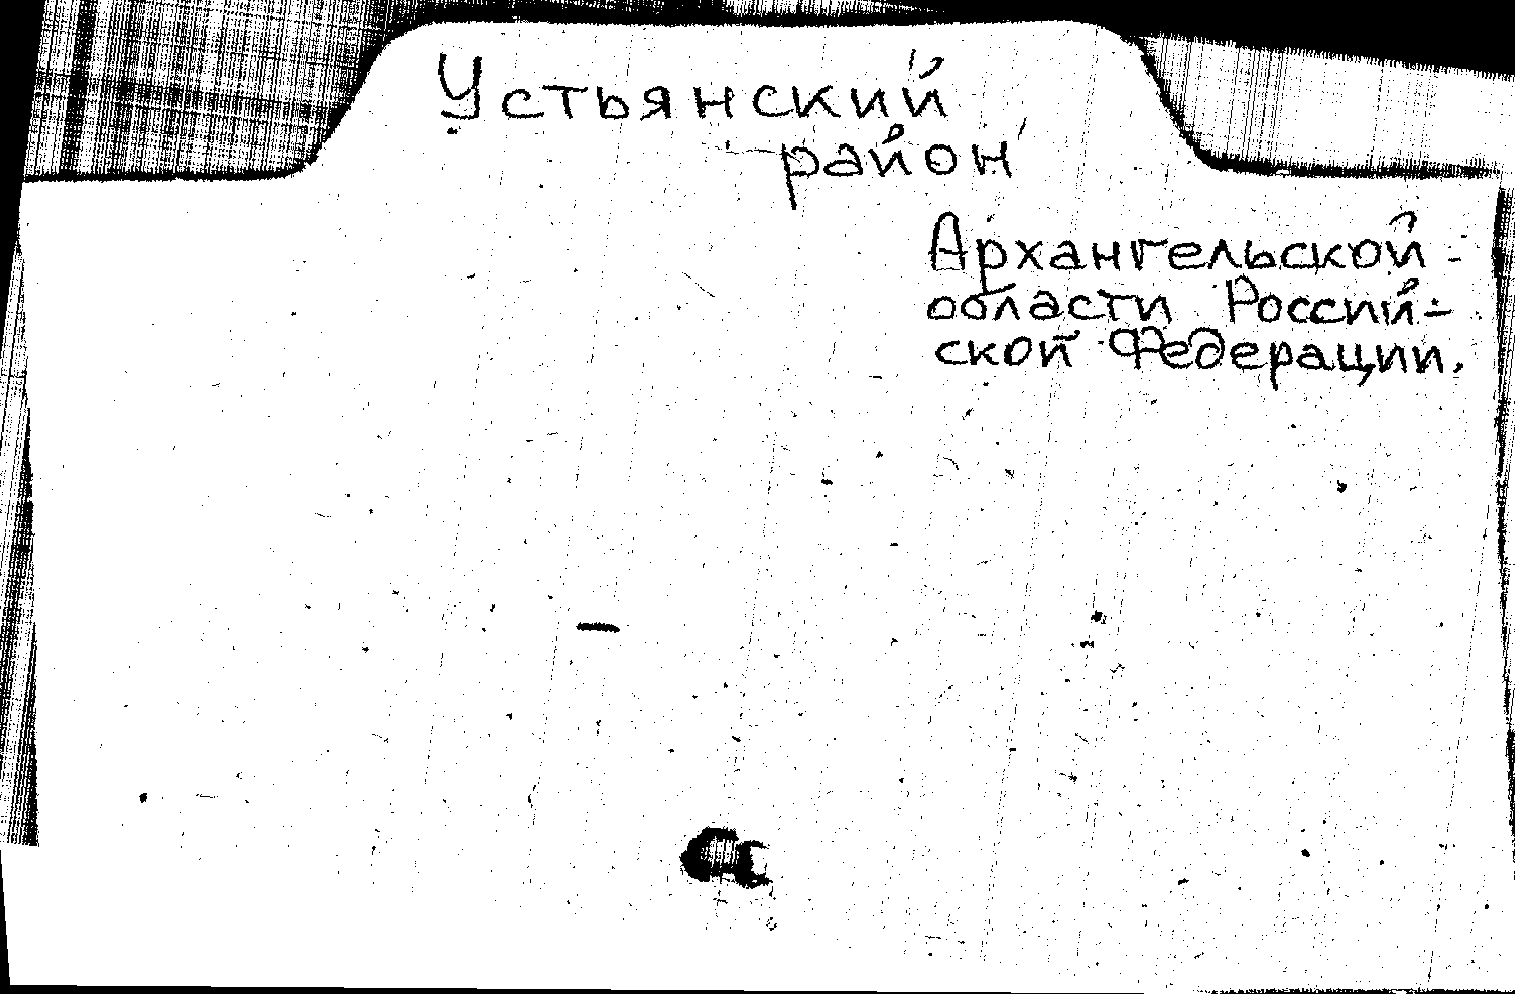 Устьянский
район
Архангельской
области Россий-
ской Федерации.